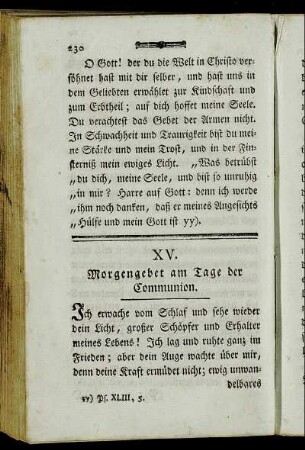 230
O Gott! der du die Welt in Christo ver-
söhnet hast mit dir selber, und hast uns in
dem Geliebten erwählet zur Kindschaft und
zum Erbtheil; auf dich hoffet meine Seele.
Du verachtest das Gebet der Armen nicht.
In Schwachheit und Traurigkeit bist du mei-
ne Stärke und mein Trost, und in der Fin-
sterniß mein ewiges Licht. „Was betrübst
„du dich, meine Seele, und bist so unruhig
„in mir? Harre auf Gott: denn ich werde
„ihm noch danken, daß er meines Angesichts
„Hülfe und mein Gott ist yy).
XV.
Morgengebet am Tage der
Communion.
Ich erwache vom Schlaf und sehe wieder
dein Licht, großer Schöpfer und Erhalter
meines Lebens! Ich lag und ruhte ganz im
Frieden; aber dein Auge wachte über mir,
denn deine Kraft ermüdet nicht; ewig unwan-
delbares
yy) Ps. XLIII, 5.